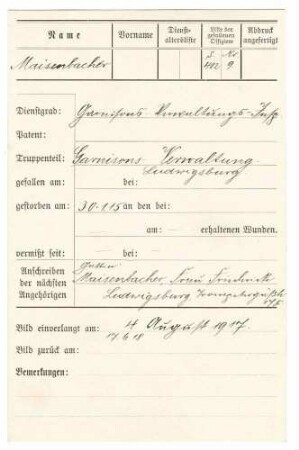 Name Vorname Dienst-altersliste Liste der gefallenen Offiziere Abdruck angefertigt
S. No
Maisenbacher 442 9.
Dienstgrad: Garnisons Verwaltungs-Insp.
Patent:
Truppenteil: Garnisons Verwaltung
Ludwigsburg
gefallen am: bei:
gestorben am: 30.1.15 an den bei:
am: erhaltenen Wunden.
vermißt seit: bei:
Gattin:
Anschreiben der nächsten Angehörigen
Maisenbacher, Frau
Ludwigsburg
Bild einverlangt am: 4 August 1917.
Bild zurück am:
Bemerkungen: